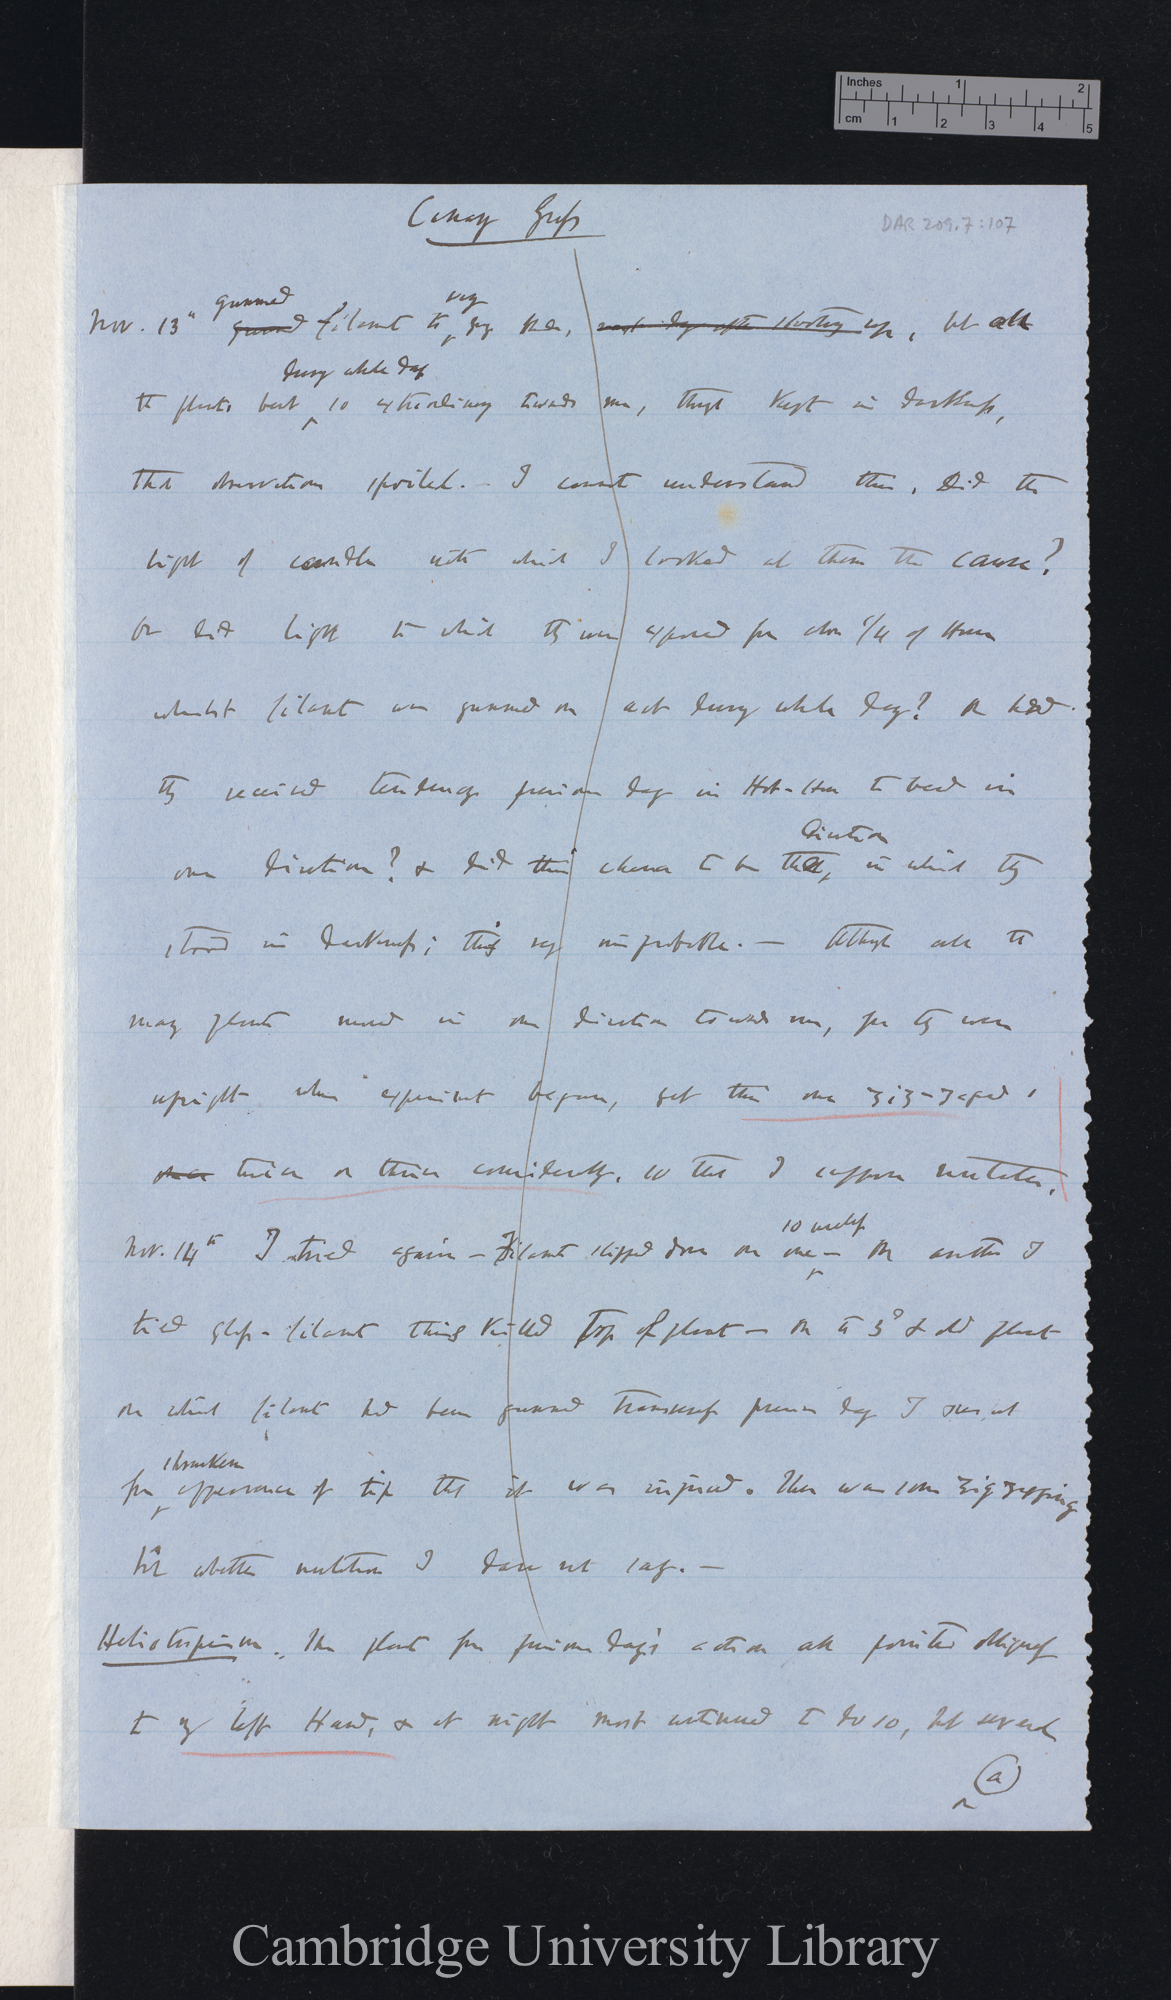 Inches 1 2
cm 1 2 3 4 5
Canary Grass
DAR 209.7:107
gummed very
Nov. 13th gummed filament to young ones, next day after shooting up, but all
during whole day
the plants bent so extraordinary towards me, though kept in darkness,
that observations spoiled. – I cannot understand this. Did the
light of candle with which I looked at them the cause?
Or did light to which they were exposed for about 1/4 of Hour
whilst filament was gummed on act during whole day? or had
they received tendency previous day in Hot-House to bend in
direction
one direction? & did this chance to be that, in which they
stood in darkness; this very improbable. — Although all the
many plants moved in one direction towards me, for they were
upright when experiment began, yet this one zig-zaged
once twice or thrice considerably, so that I suppose nutates.
10 uncles
Nov. 14th I tried again – Filament slipped down on one – On another I
tied glass-filament this killed Top of plant – On the 3d & old plant
on which filament had been gummed transversely previous day I
shrunken
from appearance of tip that it was injured. There was some zigzagging
but whether nutation I dare not say. —
Heliotropism. The plants from previous day's action all pointed obliquely
to my left Hand, & at night most continued to do so, but several
(a)
Cambridge University Library